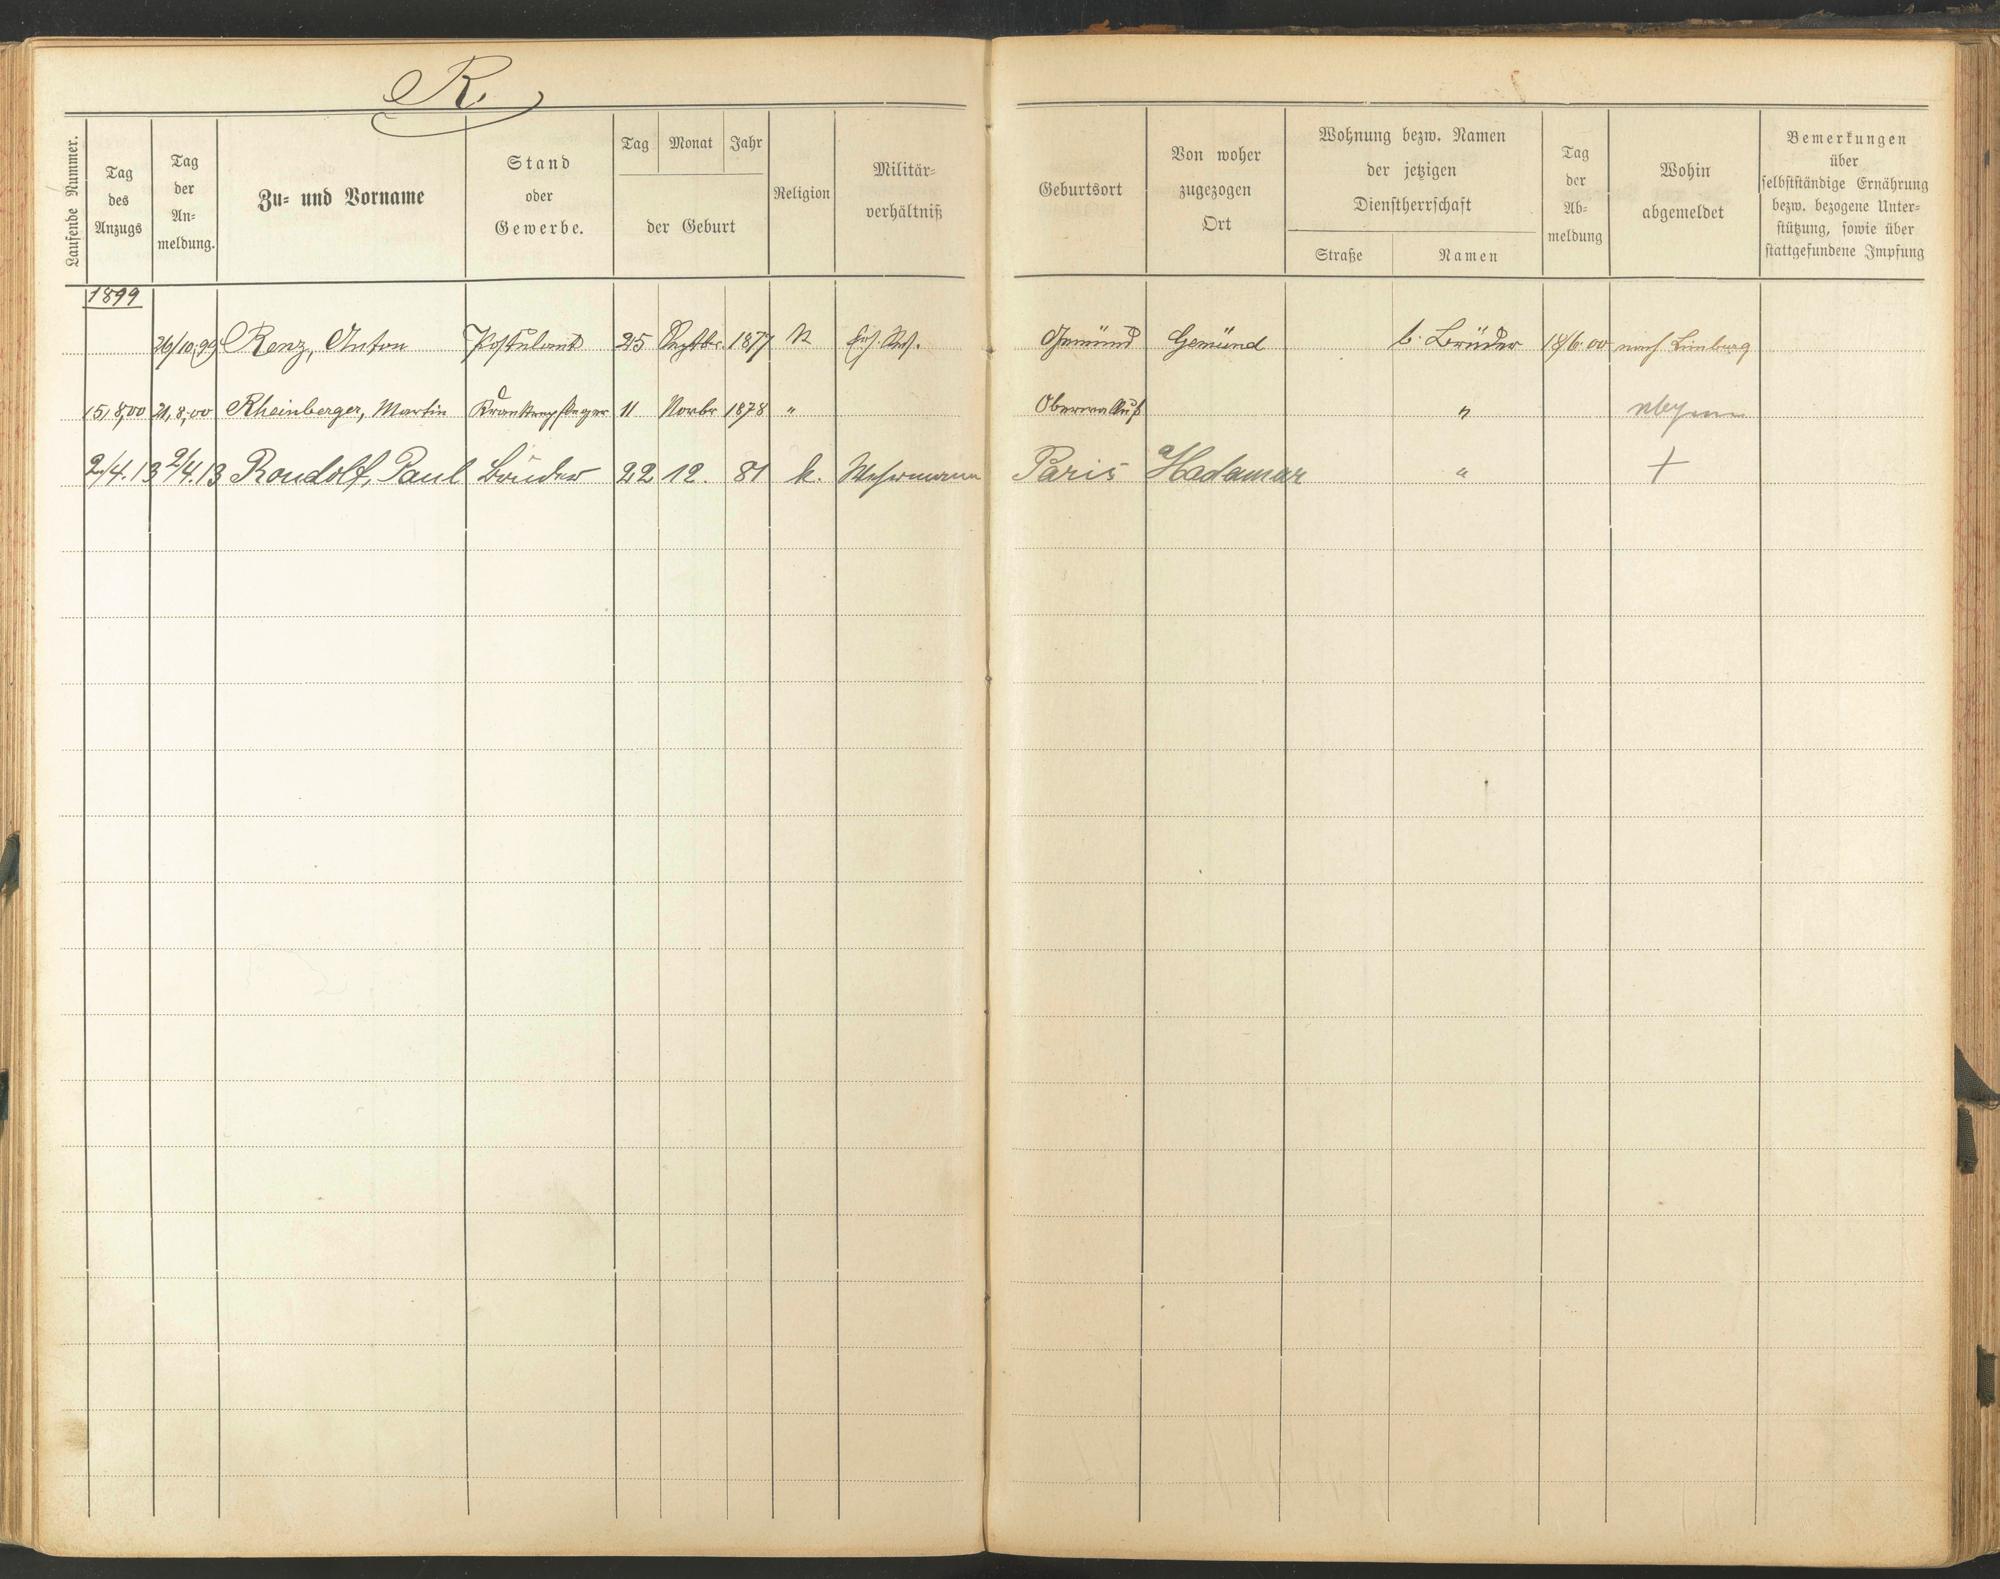 R.
Laufende Nummer.
Tag
des
Anzugs
Tag
der
An-
meldung.
Zu- und Vorname
Stand
oder
Gewerbe.
Tag Monat Jahr
der Geburt
Religion
Militär-
verhältniß
Geburtsort
Von woher
zugezogen
Ort
Wohnung bezw. Namen
der jetzigen
Dienstherrschaft
Straße Namen
Tag
der
Ab-
meldung
Wohin
abgemeldet
Bemerkungen
über
selbstständige Ernährung
bezw. bezogene Unter-
stützung, sowie über
stattgefundene Impfung
1899
26/10.99 Renz, Anton Postulant 25 Septbr. 1877 K Ers. Res. Gemünd Gemünd b. Brüder 18/6.00 nach Limburg
15,8,00 21,8,00 Rheinberger, Martin Krankenpfleger 11 Novbr 1878 " Oberwalluf "
2/4.13 2/4.13 Roudolf, Paul Bruder 22 12. 81 k. Wehrmann Paris Hadamar " +